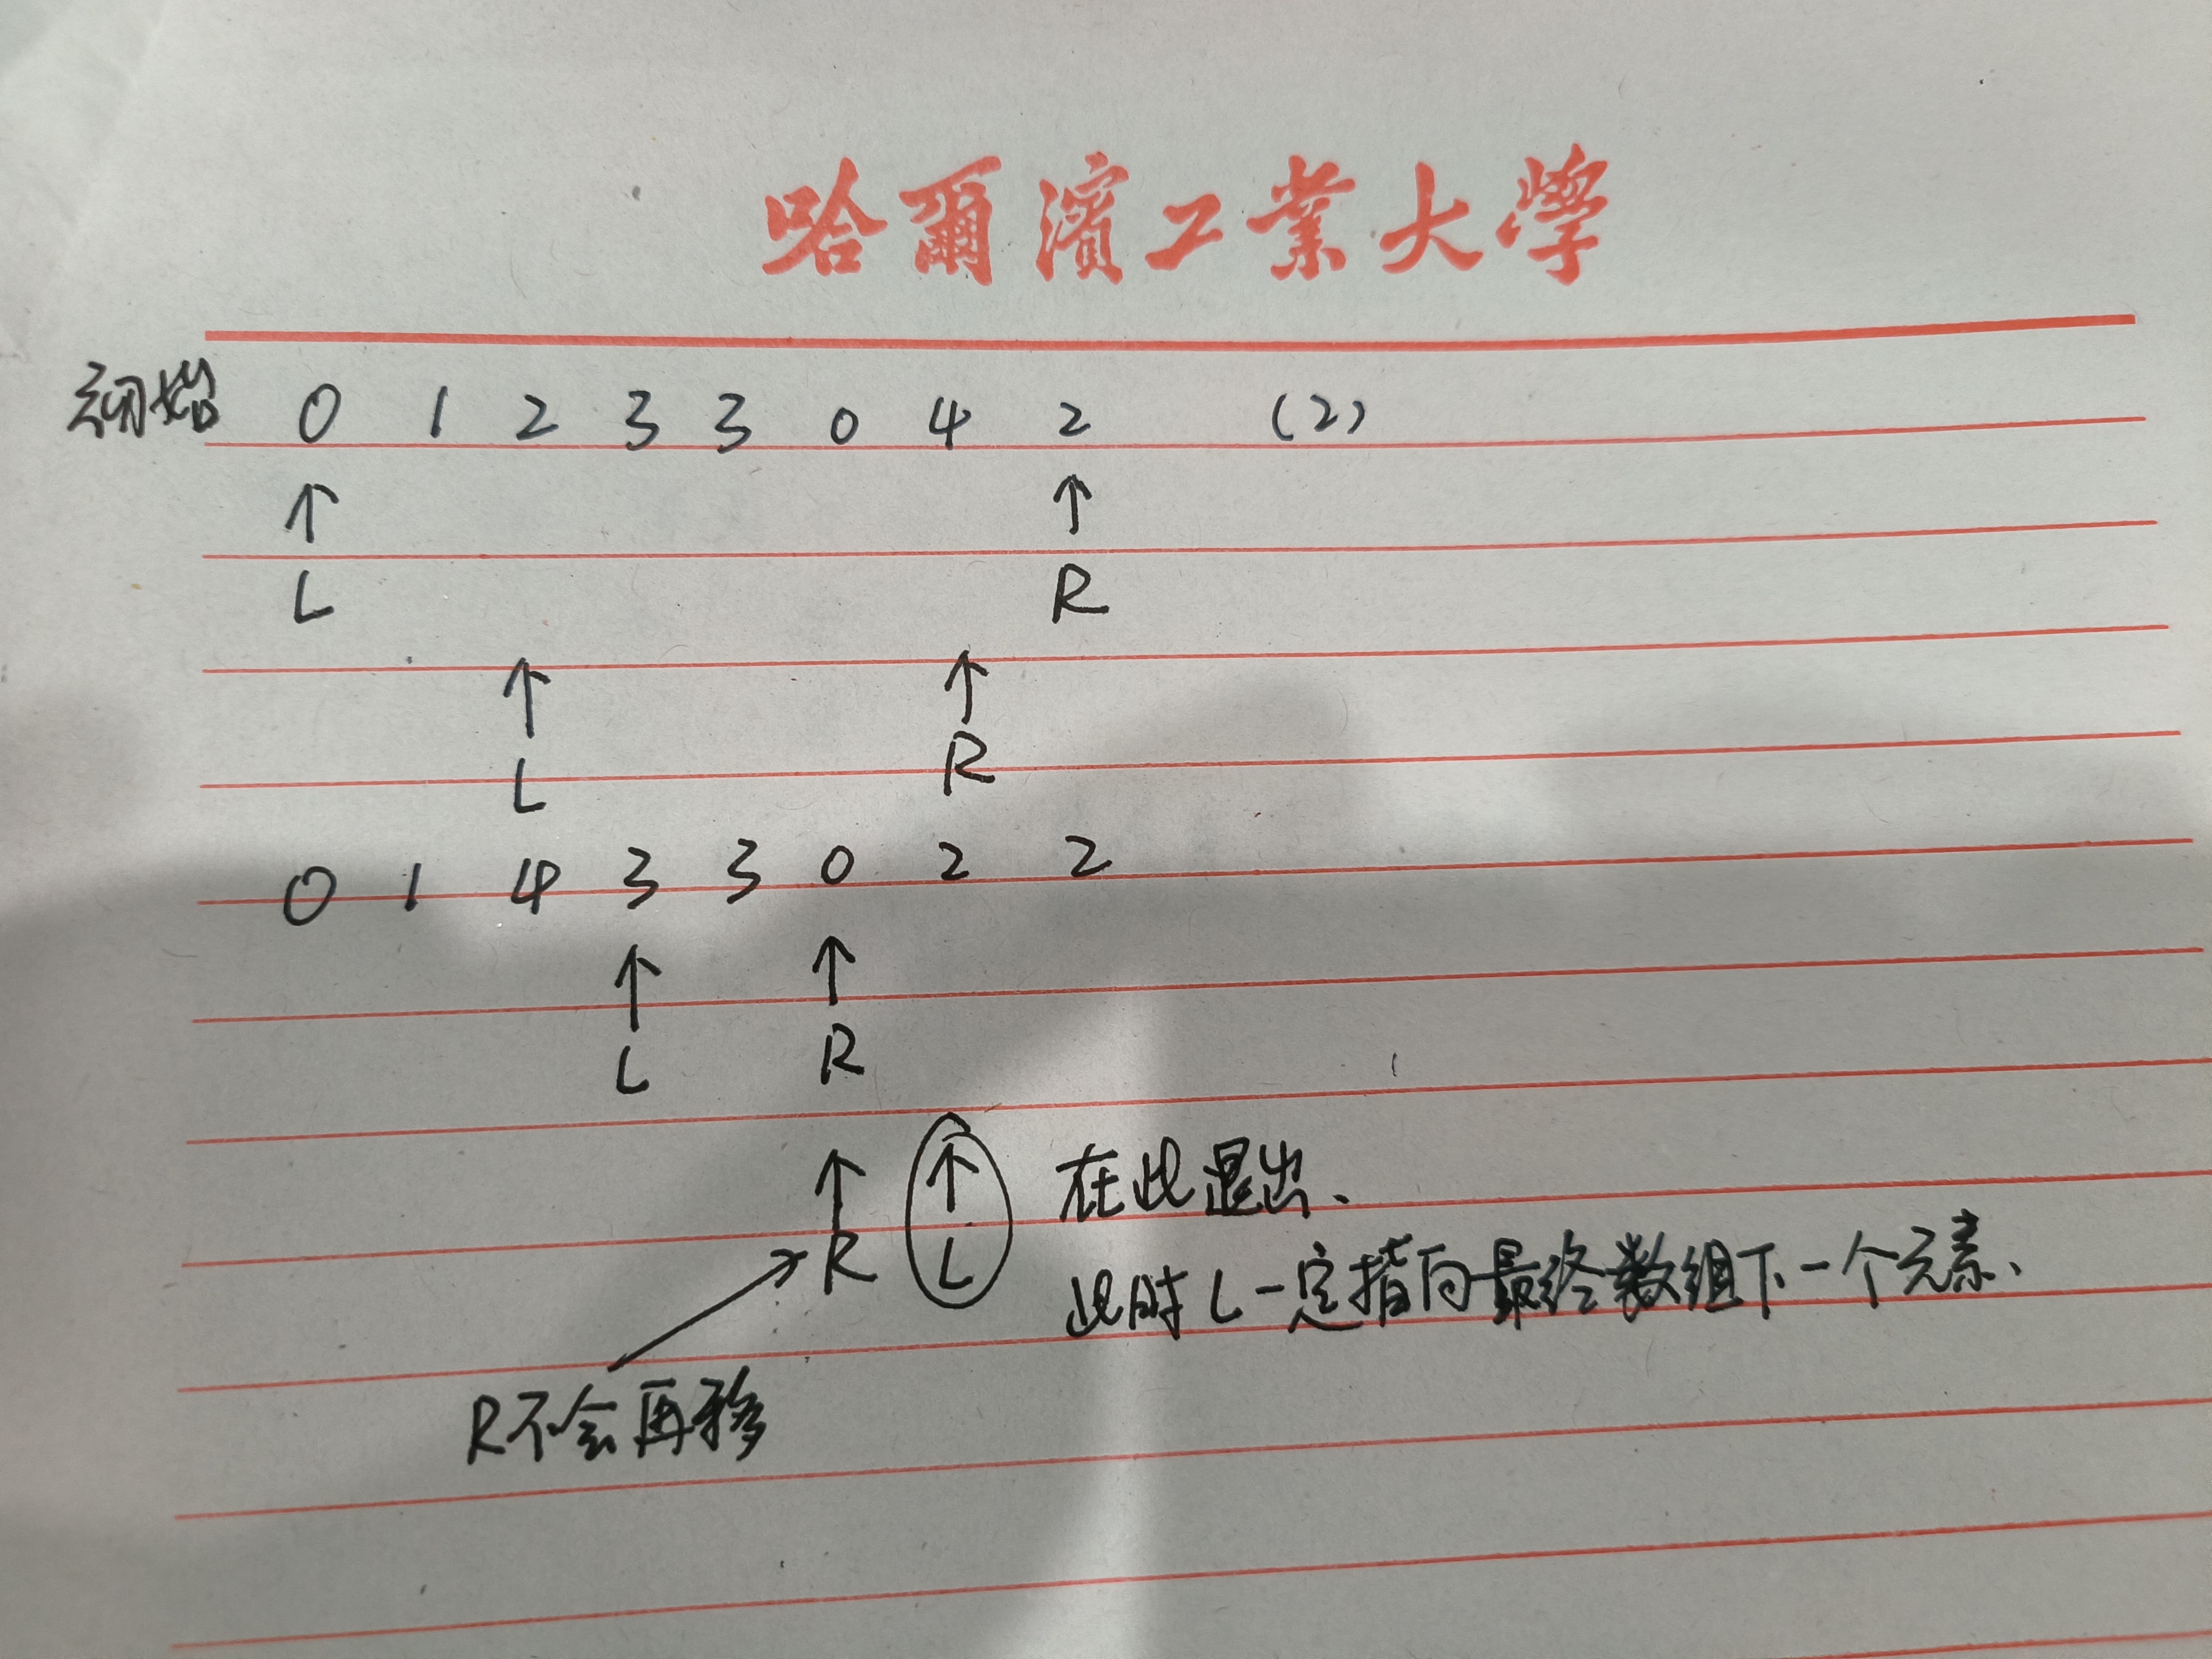 哈爾濱工業大學
初始 0 1 2 3 3 0 4 2 (2)
↑ ↑
L R
↑ ↑
L R
0 1 4 3 3 0 2 2
↑ ↑
L R
↑ ↑ 在此退出、
R L 此时L一定指向最终数组下一个元素、
R不会再移